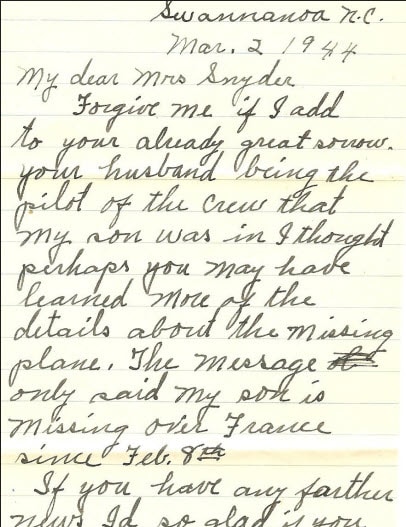 Swannanoa N.C.
Mar. 2 1944
My dear Mrs Snyder
Forgive me if I add
to your already great sorrow.
your husband being the
pilot of the crew that
my son was in I thought
perhaps you may have
learned more of the
details about the missing
plane. The message
only said my son is
missing over France
since Feb. 8th
If you have any farther
news I'd so glad if you